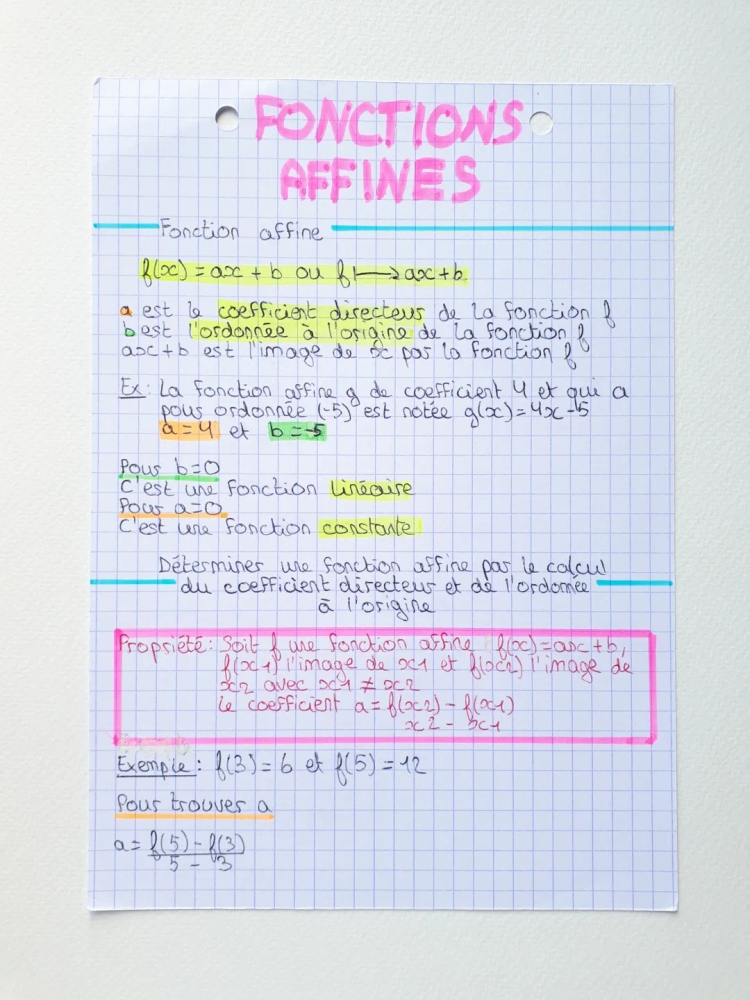 FONCTIONS
AFFINES
Fonction affine
f(x) = ax + b ou f ⟼ ax + b
a est le coefficient directeur de la fonction f
b est l'ordonnée à l'origine de la fonction f
ax + b est l'image de x par la fonction f
Ex: La fonction affine g de coefficient 4 et qui a
pour ordonnée (-5) est notée g(x) = 4x - 5
a = 4 et b = -5
Pour b = 0
C'est une fonction linéaire
Pour a = 0
C'est une fonction constante
Déterminer une fonction affine par le calcul
du coefficient directeur et de l'ordonnée
à l'origine
Propriété: Soit f une fonction affine f(x) = ax + b,
f(x1) l'image de x1 et f(x2) l'image de
x2 avec x1 ≠ x2
le coefficient a = f(x2) - f(x1)
x2 - x1
Exemple: f(3) = 6 et f(5) = 12
Pour trouver a
a = f(5) - f(3)
5 - 3